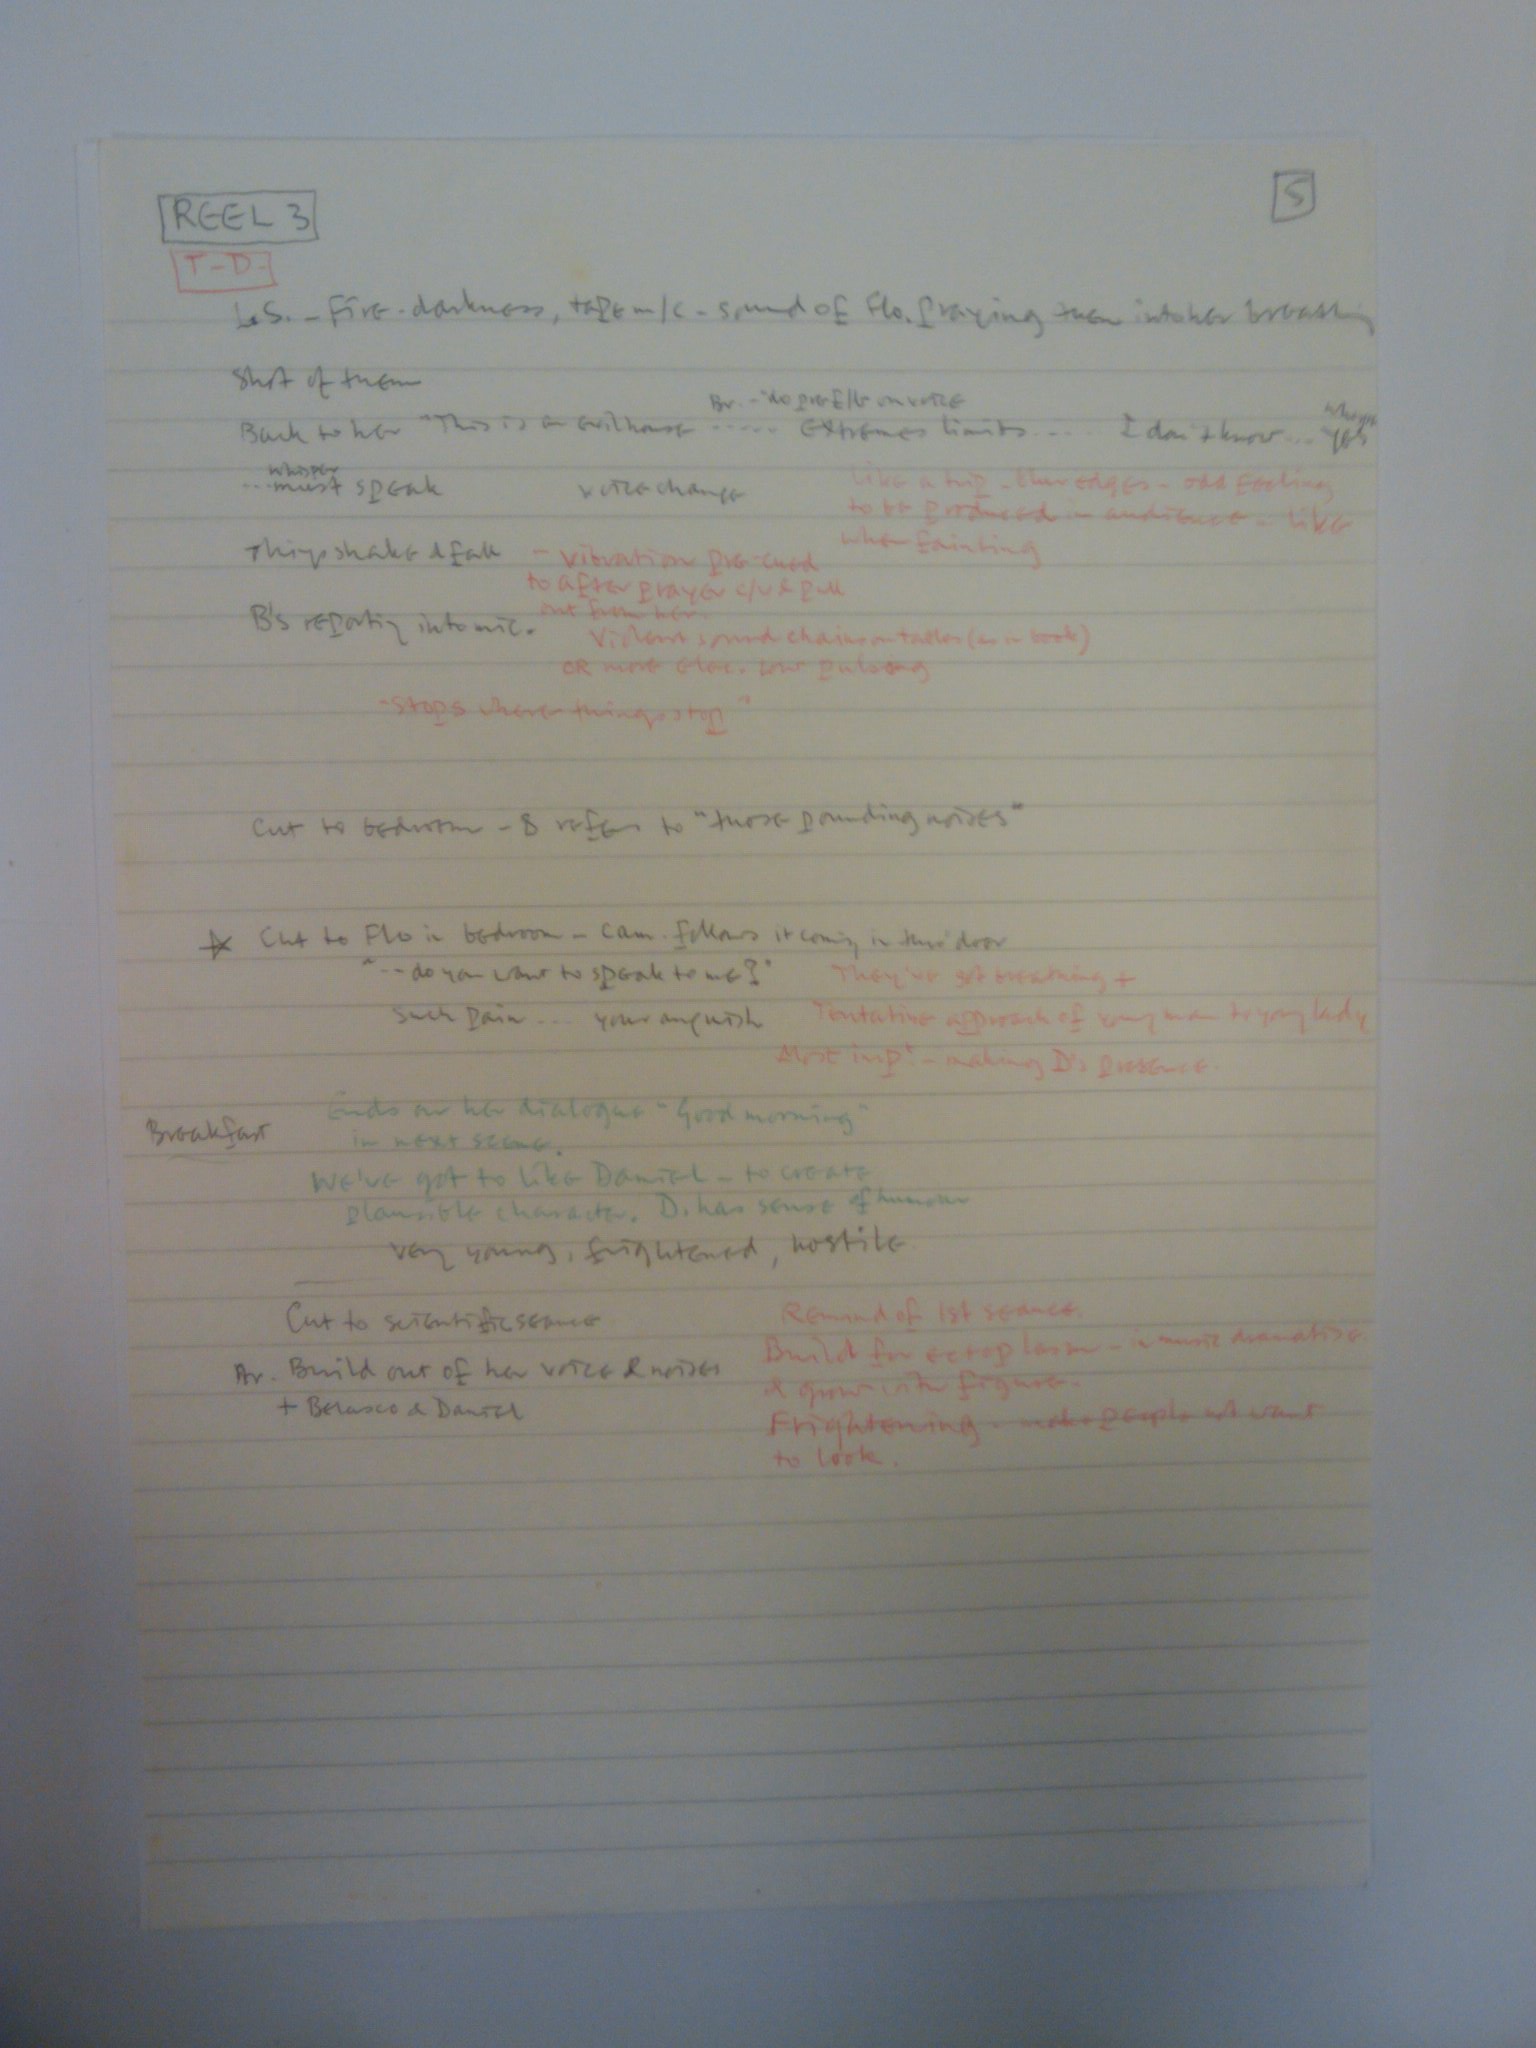 REEL 3
5
T-D-
L.S. - Fire - darkness, tape m/c - sound of Flo. praying then into her breathing
Shot of them
Br. - do profile on voice
Back to her "This is an evil house ..... extremes limits .... I don't know ... yes
whisper
... must speak voice change
Like a trip - blur edges - odd feeling
to be produced in audience - like
when fainting
Things shake & fall
- vibration pre-cued
to after prayer c/u & pull
out from her.
B's reporting into mic.
Violent sound chains on tables (as in book)
OR more elec. low pulsing
"Stops where things stop"
Cut to bedroom - B refers to "those pounding noises"
☆ Cut to Flo in bedroom - Cam. follows it coming in thro' door
"-- do you want to speak to me?"
They've got breathing +
such pain ... your anguish
Tentative approach of young man to young lady
Most imp! - making D's presence.
Breakfast
Ends on her dialogue "Good morning"
in next scene.
We've got to like Daniel - to create
plausible character. D. has sense of humour
very young, frightened, hostile
Cut to scientific seance
Remind of 1st seance.
Build for ectoplasm - in music dramatise
Build out of her voice & noises
& grow with figure.
+ Belasco & Daniel
Frightening - make people not want
to look.